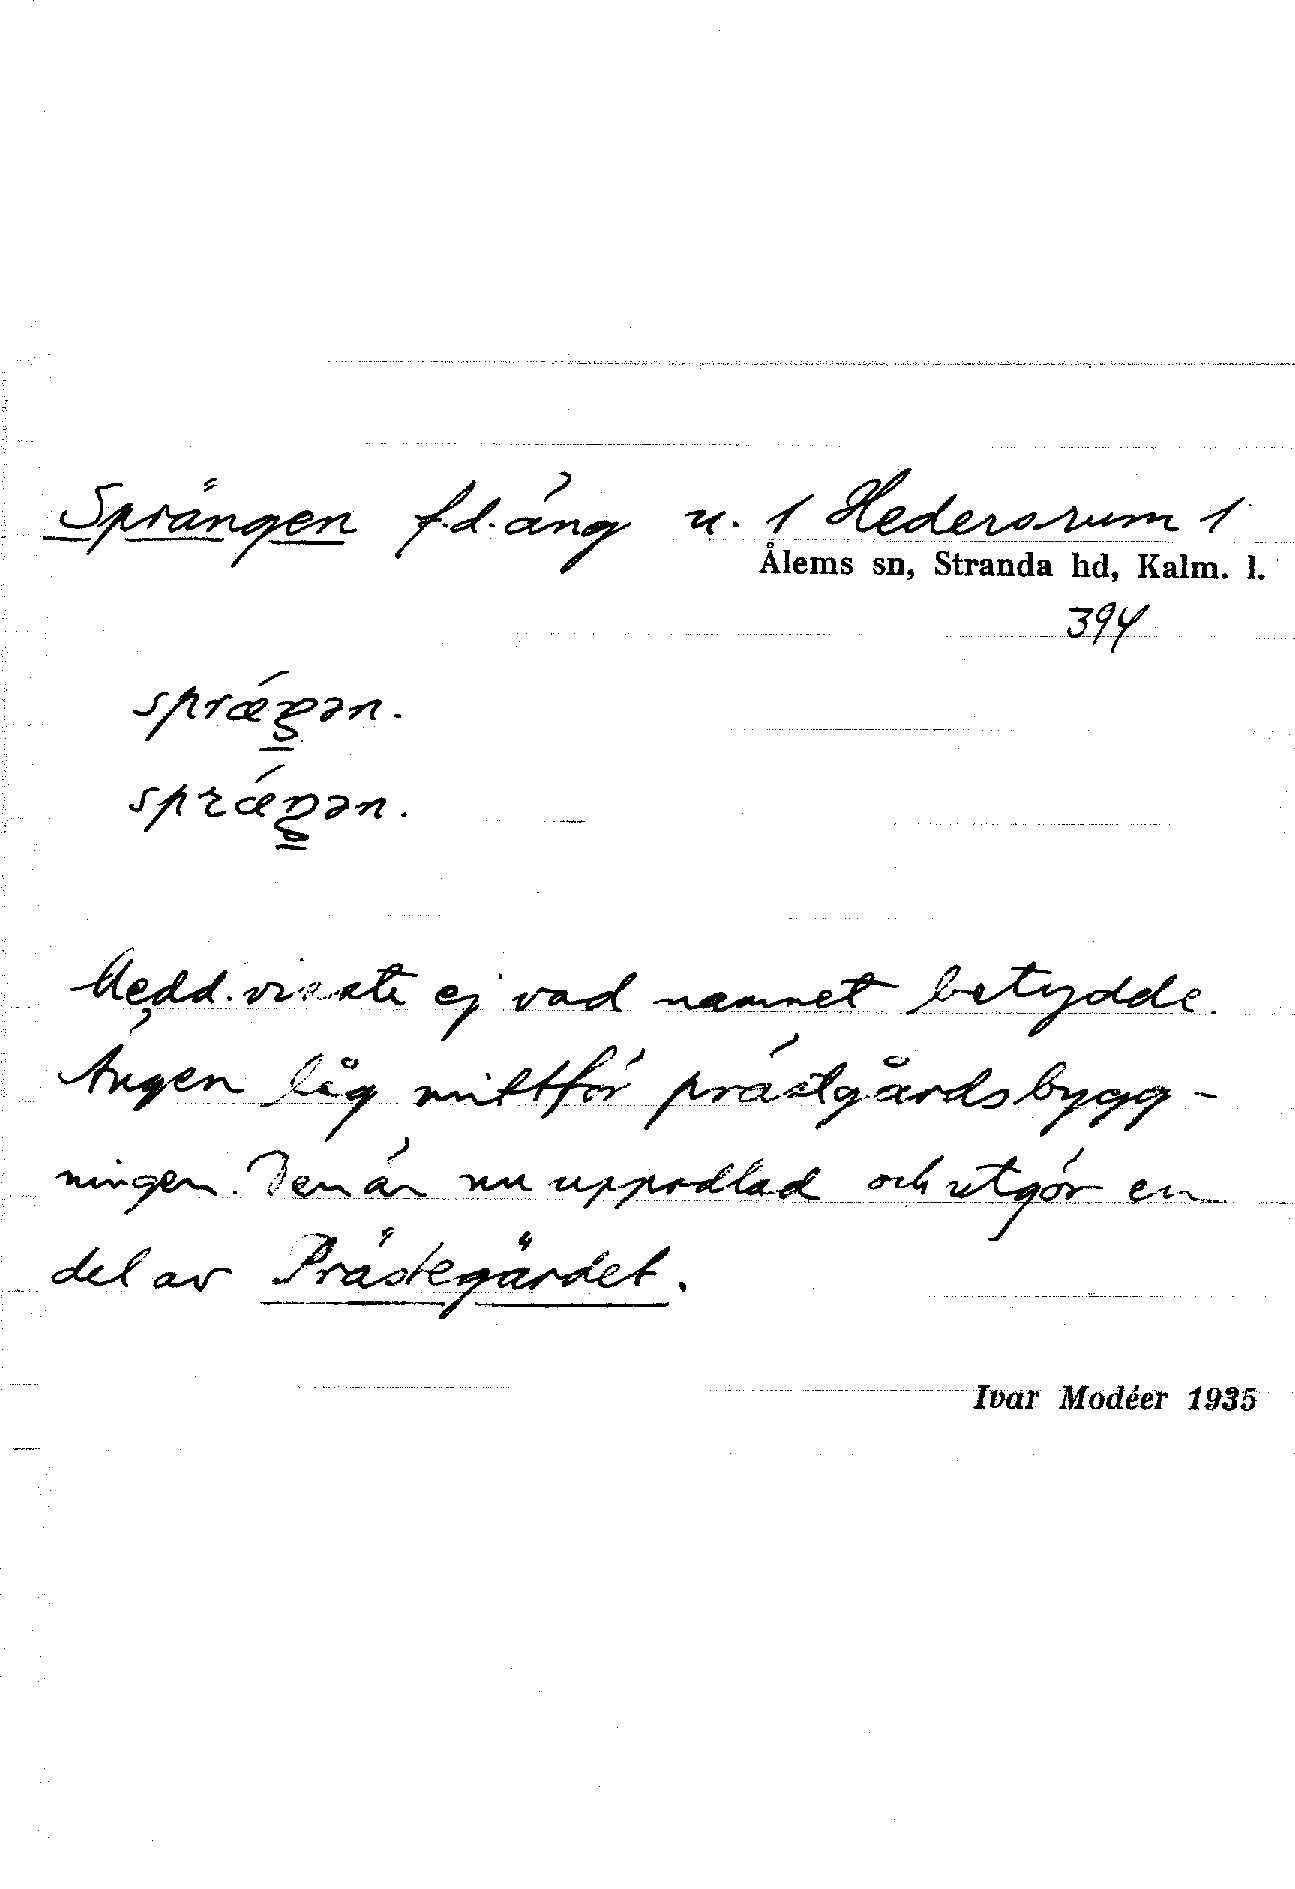 Sprängen f.d. äng u. 1 Hedersrum 1
Ålems sn, Stranda hd, Kalm. l.
394
sprǽŋən.
sprǽŋən.
Medd. visste ej vad namnet betydde.
Ängen låg mittför prästgårdsbygg-
ningen. Den är nu uppodlad och utgör en
del av Prästegärdet.
Ivar Modéer 1935